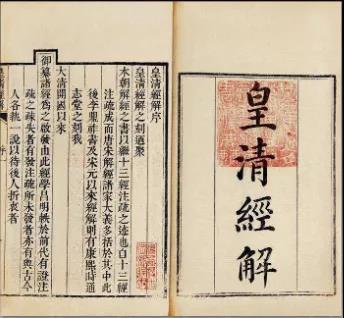 皇清經解
皇清經解序
皇清經解之刻迺聚
本朝解經之書以繼十三經注疏之迹也自十三經
注疏成而唐宋解經諸家大義多括於其中此
後李鼎祚書及宋元以來經解則有康熙時通
志堂之刻我
大清開國以來
御纂諸經為之啟發由此經學昌明軼於前代有證注
疏之疎失者有發注疏所未發者亦有與古今
人各執一說以待後人折衷者